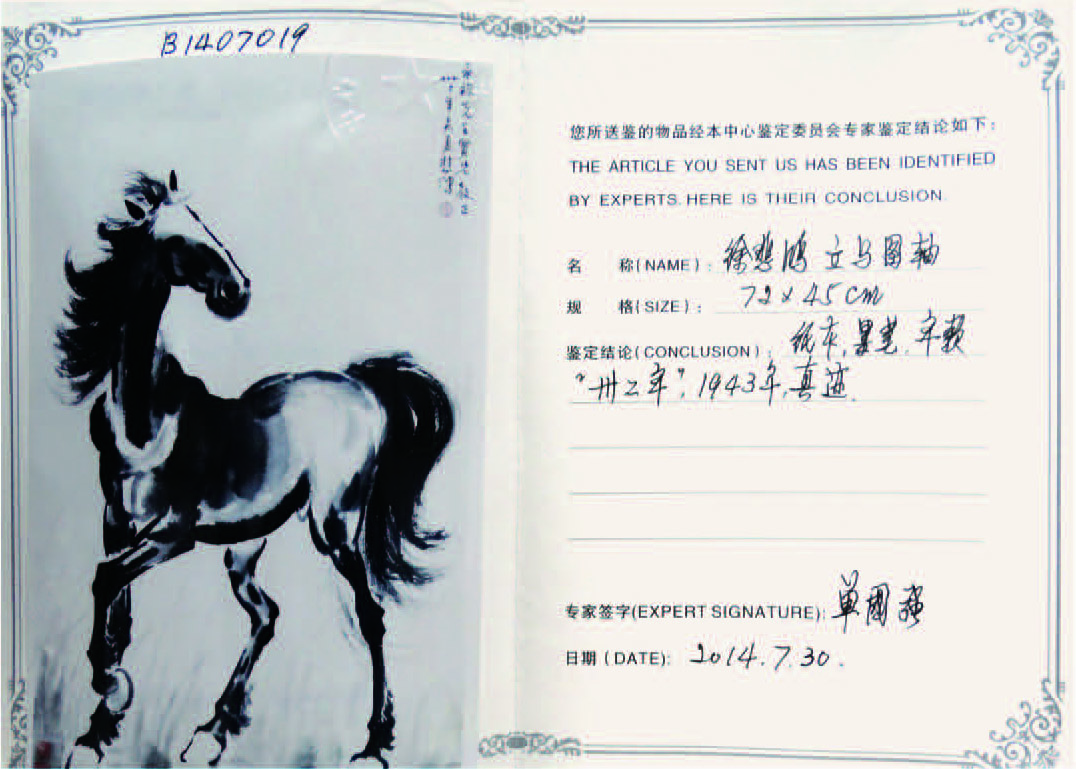 B1407019
您所送鉴的物品经本中心鉴定委员会专家鉴定结论如下:
THE ARTICLE YOU SENT US HAS BEEN IDENTIFIED
BY EXPERTS. HERE IS THEIR CONCLUSION.
名 称(NAME): 徐悲鸿 立马图轴
规 格(SIZE): 72×45cm
鉴定结论(CONCLUSION): 纸本,墨笔,年款
"卅二年",1943年,真迹.
专家签字(EXPERT SIGNATURE): 单國强
日期(DATE): 2014.7.30.